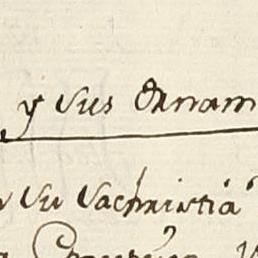 y sus Ornam
su Sachristia